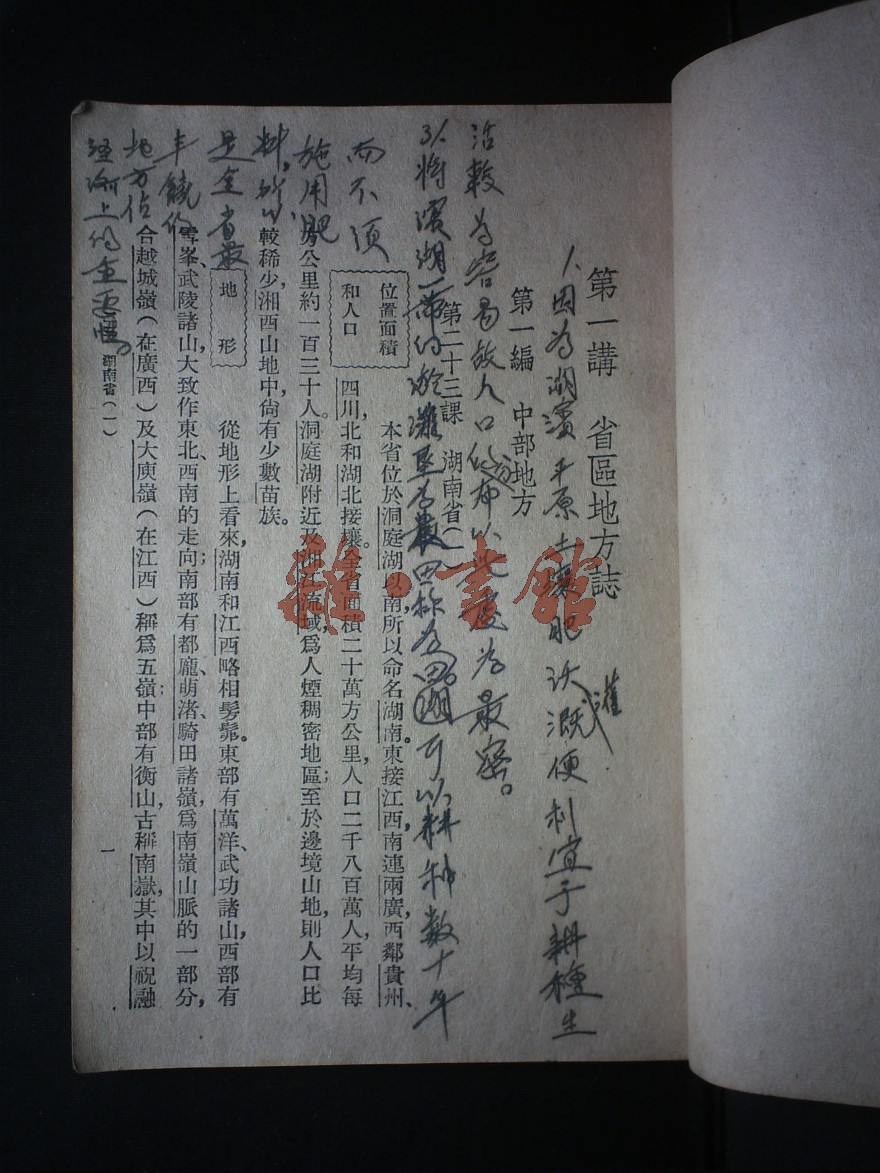 第一講　省區地方誌
人因为湖濱平原土壤肥沃灌溉便利宜于耕種生
第一編　中部地方
活較为容易故人口的分布以此处为最密。
第二十三課　湖南省(一)
将濱湖一带的淤灘垦为農田称为湖田可以耕种数十年
位置面積
和人口
而不須
本省位於洞庭湖以南,所以命名湖南。東接江西,南連兩廣,西鄰貴州、
四川,北和湖北接壤。全省面積二十萬方公里,人口二千八百萬人,平均每
施用肥
方公里約一百三十人。洞庭湖附近及湘江流域,爲人煙稠密地區;至於邊境山地,則人口比
料,所以
較稀少,湘西山地中尙有少數苗族。
是全省最
地　形
從地形上看來,湖南和江西略相髣髴。東部有萬洋、武功諸山,西部有
丰饒的
雪峯、武陵諸山,大致作東北、西南的走向;南部有都龐、萌渚、騎田諸嶺,爲南嶺山脈的一部分,
地方佔
合越城嶺(在廣西)及大庾嶺(在江西)稱爲五嶺;中部有衡山,古稱南嶽,其中以祝融
经济上的重要性。
湖南省(一)
一
雜·書館